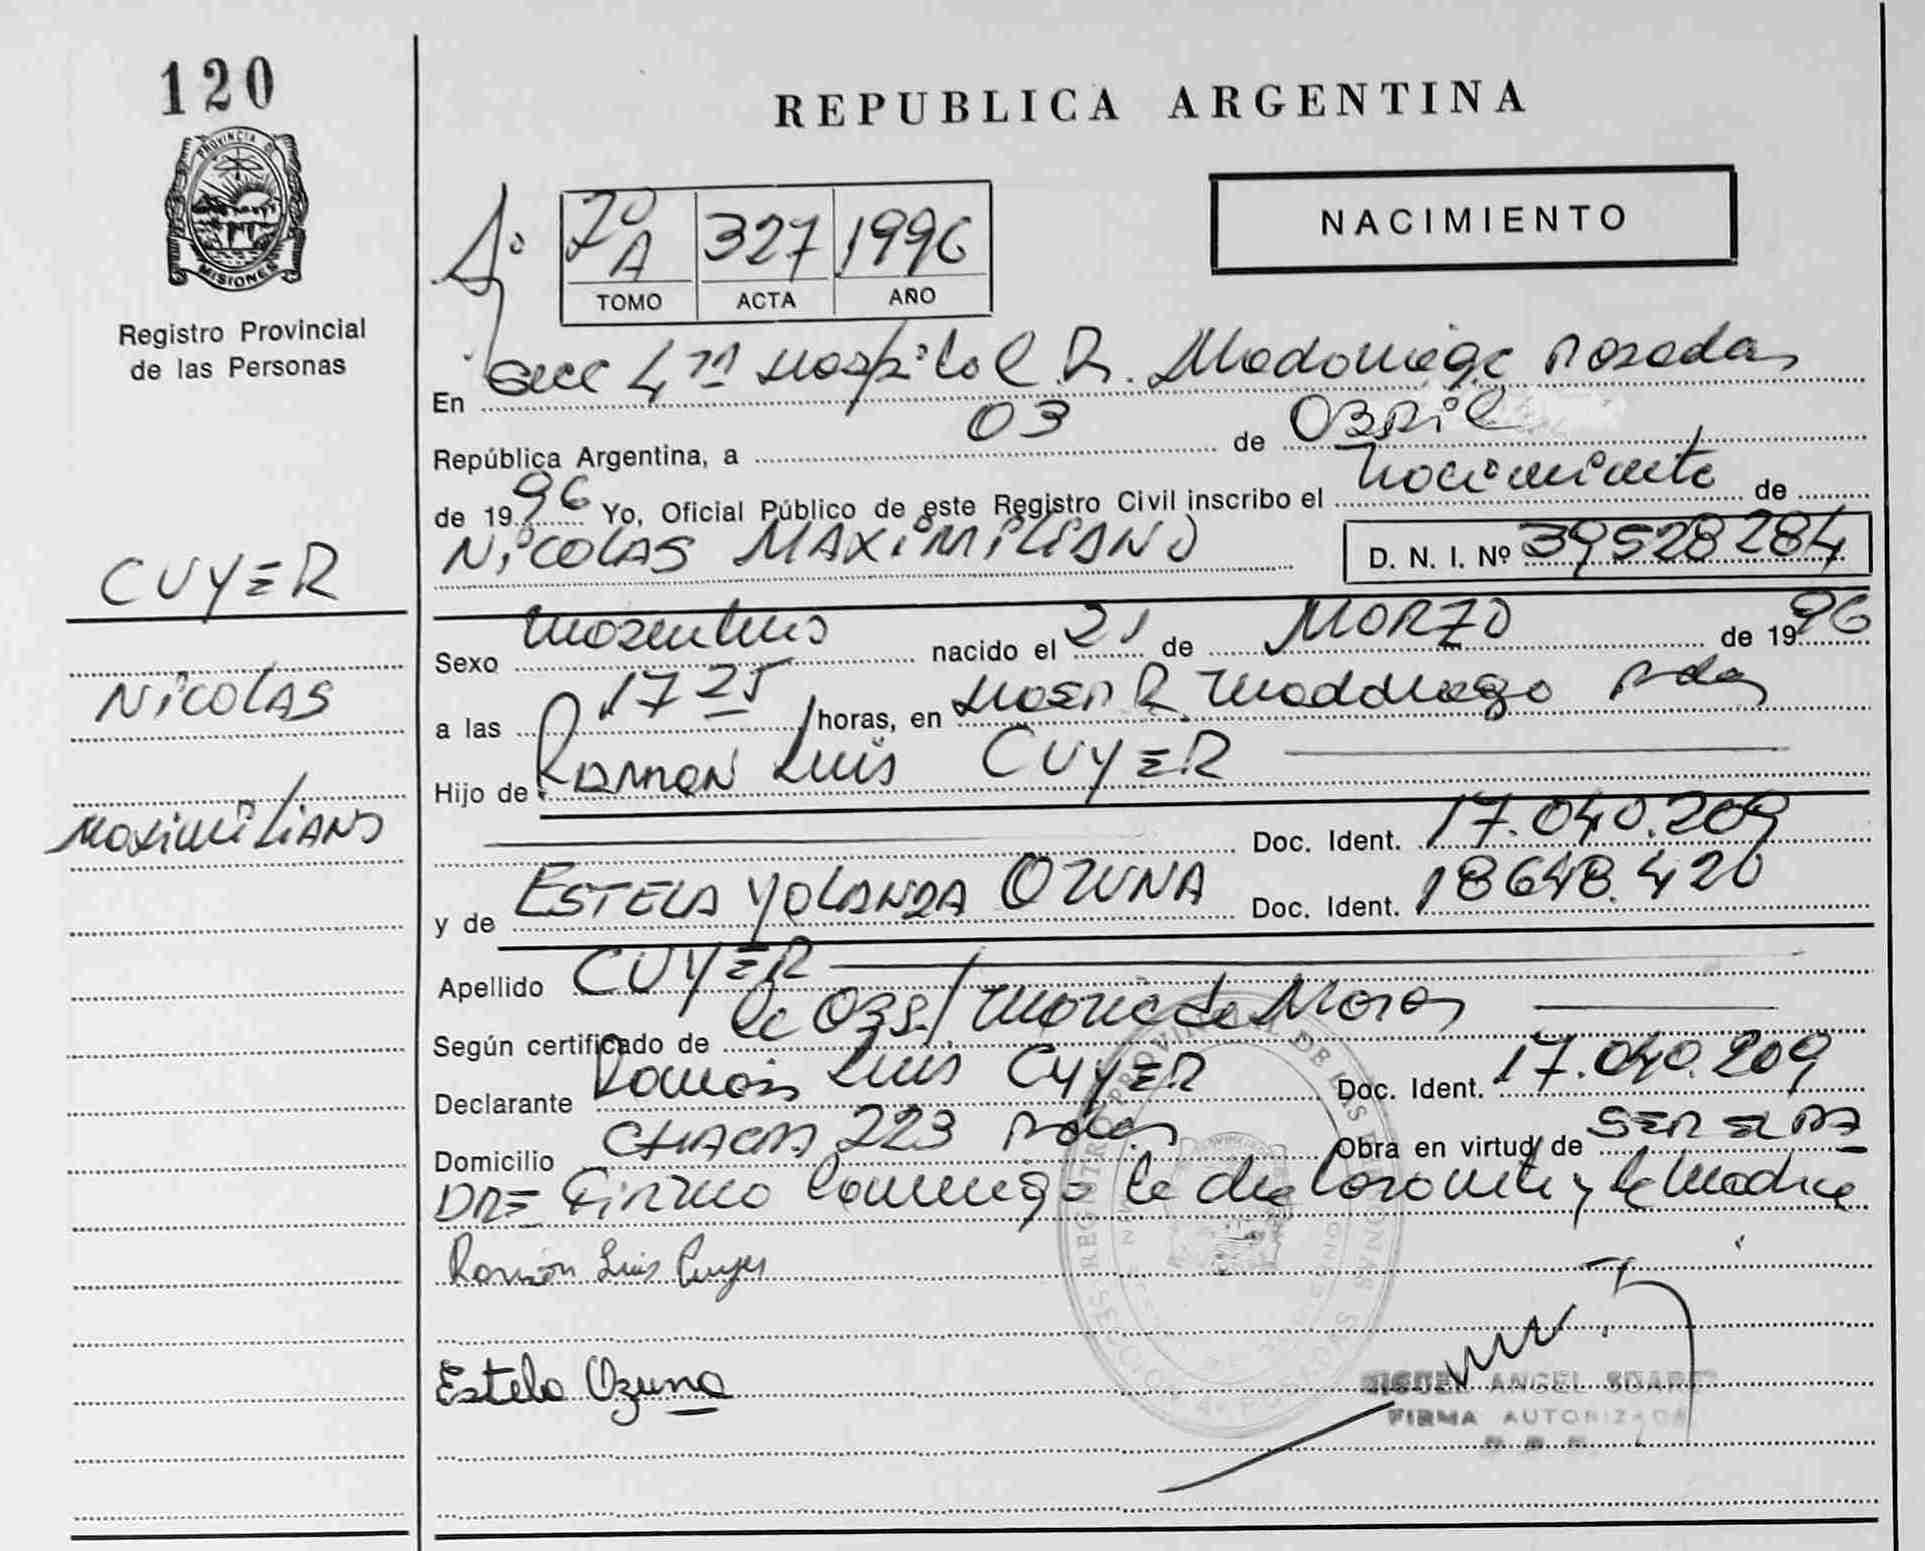 120
PROVINCIA DE
MISIONES
Registro Provincial
de las Personas
CUYER
NICOLAS
MAXIMILIANO
REPUBLICA ARGENTINA
NACIMIENTO
7º A 327 1996
TOMO ACTA AÑO
En Secc 4ta Hospital R. Madariaga Posadas
República Argentina, a 03 de ABRIL
de 1996 Yo, Oficial Público de este Registro Civil inscribo el nacimiento de
NICOLAS MAXIMILIANO D. N. I. Nº 39528284
Sexo masculino nacido el 21 de MARZO de 1996
a las 17 25 horas, en Hosp R. Madariaga Pdas
Hijo de RAMON Luis CUYER
Doc. Ident. 17.040.209
y de ESTELA YOLANDA OZUNA Doc. Ident. 18648.420
Apellido CUYER
Según certificado de la Obs/ Maria de
Declarante Ramón Luis CUYER Doc. Ident. 17.040.209
Domicilio CHACRA 223 Pdas Obra en virtud de SER EL PA
DRE Firman conmigo la declarante y la madre
Ramón Luis Cuyer
Estela Ozuna
MIGUEL ANGEL
FIRMA AUTORIZADA